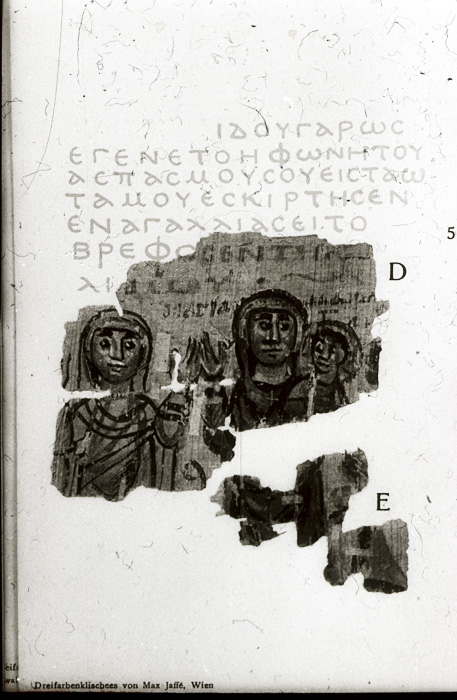 ΙΔΟΥΓΑΡΩϹ
ΕΓΕΝΕΤΟΗΦΩΝΗΤΟΥ
ΑϹΠΑϹΜΟΥϹΟΥΕΙϹΤΑΩ
ΤΑΜΟΥΕϹΚΙΡΤΗϹΕΝ
ΕΝΑΓΑΛΛΙΑϹΕΙΤΟ
ΒΡΕΦΟϹΕΝΤΗ
D
5
E
Dreifarbenklischees von Max Jaffé, Wien